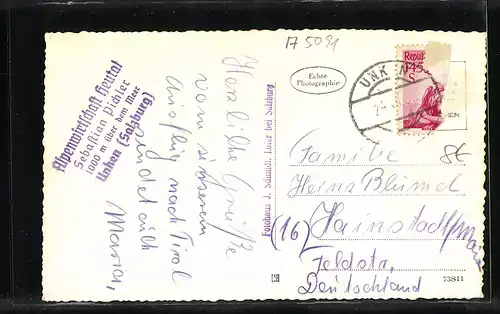 17 5091
Alpenwirtschaft Heutal
Sebastian Pichler
1000 m über dem Meer
Unken (Salzburg)
Herzliche Grüße
vom
Ausflug nach Tirol
sendet euch
Maria,
Fotohaus J. Schmidt, Lofer bei Salzburg
Echte
Photographie
UNKEN
Republ.
1.45
S
Familie
Heinz Blümel
(16) Hainstadt/Main
Feldstr.
Deutschland
73811